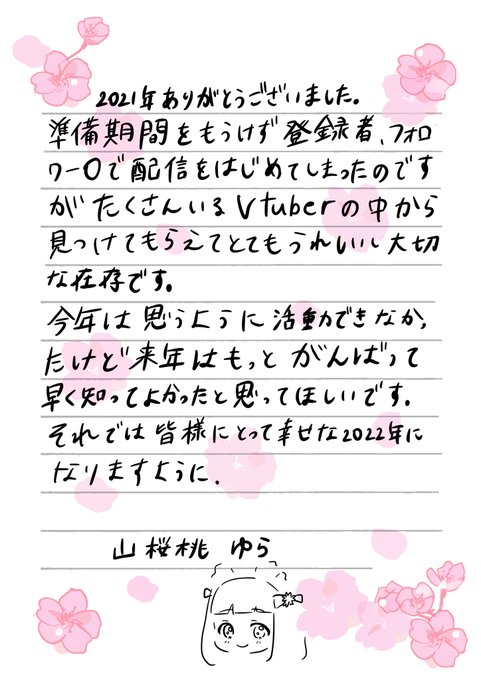 2021年ありがとうございました。
準備期間をもうけず登録者、フォロ
ワー0で配信をはじめてしまったのです
がたくさんいるVtuberの中から
見つけてもらえてとてもうれしいし大切
な存在です。
今年は思うように活動できなかっ
たけど来年はもっとがんばって
早く知ってよかったと思ってほしいです。
それでは皆様にとって幸せな2022年に
なりますように.
山桜桃 ゆら